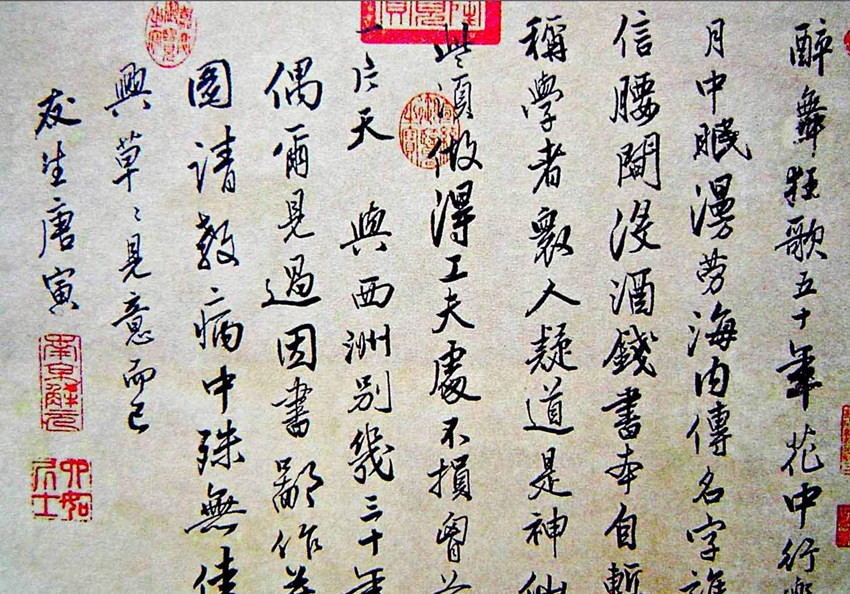 醉舞狂歌五十年花中行樂
月中眠漫勞海内傳名字誰
信腰間没酒錢書本自慚
稱學者衆人疑道是神仙
些須做得工夫處不損胷前
一片天 與西洲別幾三十年
偶爾見過因書鄙作并
圖請教病中殊無佳
興草〻見意而已
友生唐寅
南京解元
六如居士